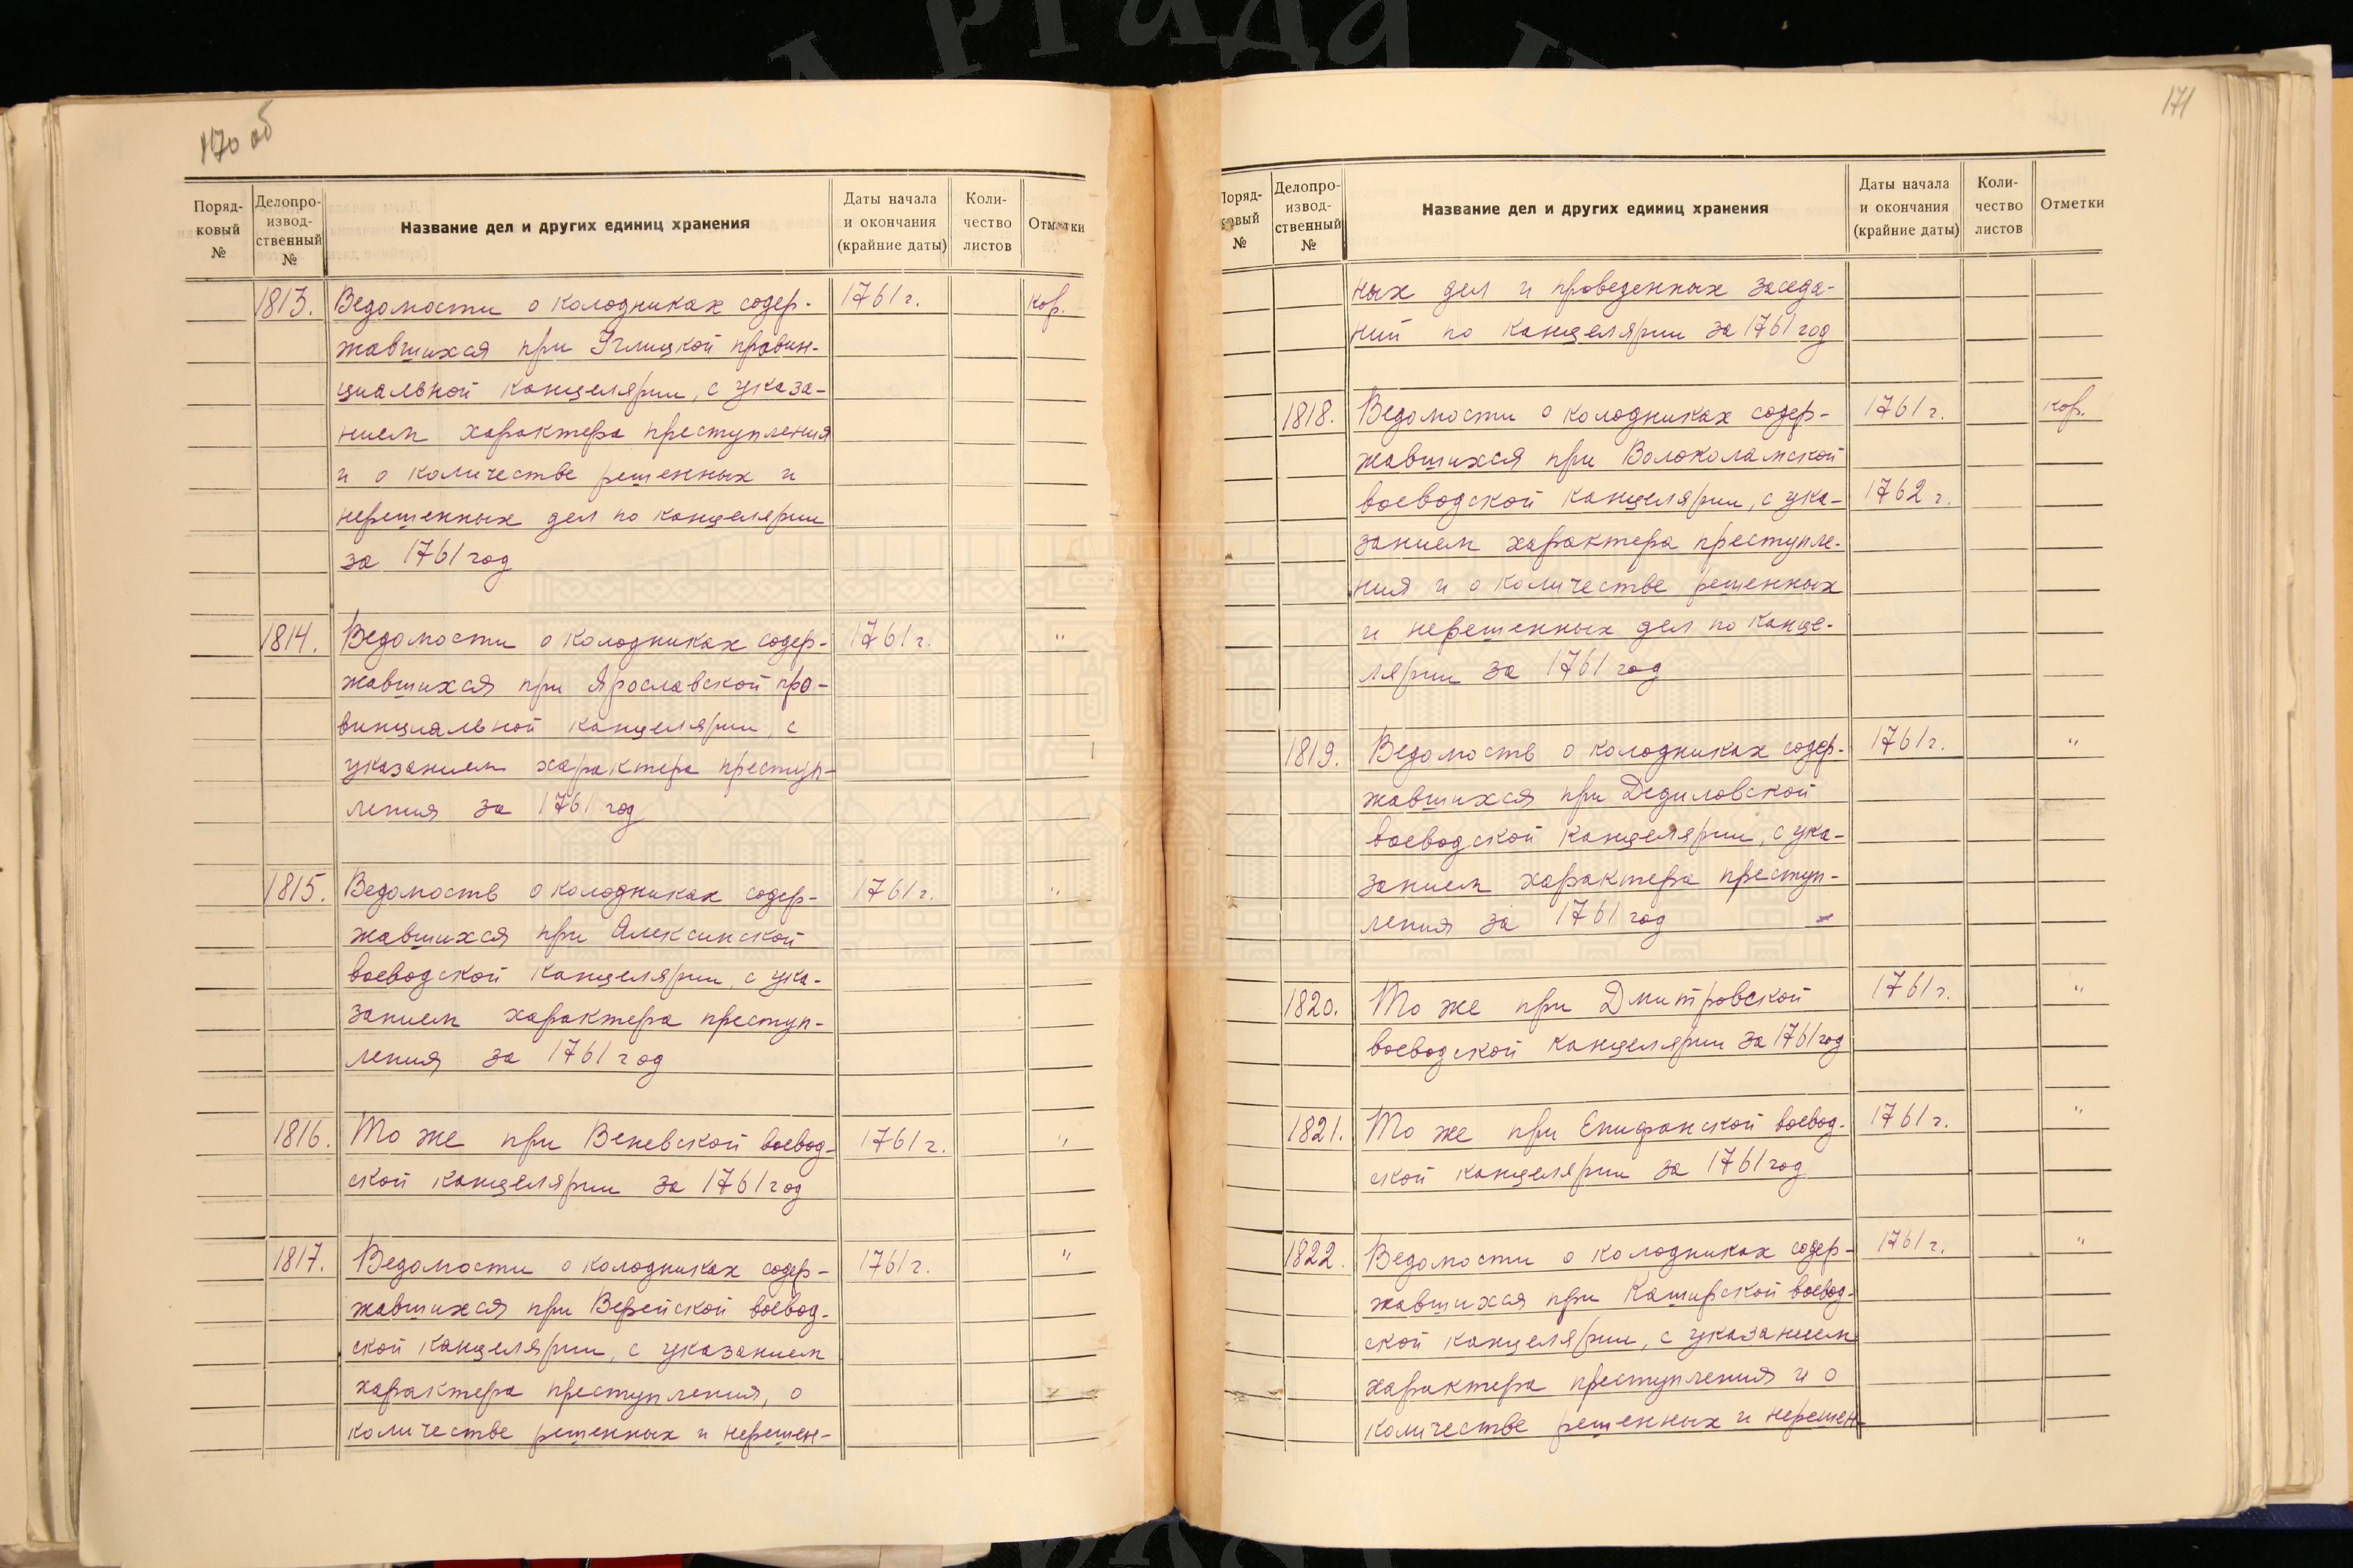 170 об
Поряд-
ковый
№
Делопро-
извод-
ственный
№
Название дел и других единиц хранения
Даты начала
и окончания
(крайние даты)
Коли-
чество
листов
Отметки
1813. Ведомости о колодниках содер- 1761 г. кор.
жавшихся при Углицкой провин-
циальной канцелярии, с указа-
нием характера преступления
и о количестве решенных и
нерешенных дел по канцелярии
за 1761 год
1814. Ведомости о колодниках содер- 1761 г. "
жавшихся при Ярославской про-
винциальной канцелярии, с
указанием характера преступ-
ления за 1761 год
1815. Ведомость о колодниках содер- 1761 г. "
жавшихся при Алексинской
воеводской канцелярии, с ука-
занием характера преступ-
ления за 1761 год
1816. То же при Веневской воевод- 1761 г. "
ской канцелярии за 1761 год
1817. Ведомости о колодниках содер- 1761 г. "
жавшихся при Верейской воевод-
ской канцелярии, с указанием
характера преступления, о
количестве решенных и нерешен-
171
Поряд-
ковый
№
Делопро-
извод-
ственный
№
Название дел и других единиц хранения
Даты начала
и окончания
(крайние даты)
Коли-
чество
листов
Отметки
ных дел и проведенных заседа-
ний по канцелярии за 1761 год
1818. Ведомости о колодниках содер- 1761 г. кор.
жавшихся при Волоколамской
воеводской канцелярии, с ука- 1762 г.
занием характера преступле-
ния и о количестве решенных
и нерешенных дел по канце-
лярии за 1761 год
1819. Ведомость о колодниках содер- 1761 г. "
жавшихся при Дедиловской
воеводской канцелярии, с ука-
занием характера преступ-
ления за 1761 год
1820. То же при Дмитровской 1761 г. "
воеводской канцелярии за 1761 год
1821. То же при Епифанской воевод- 1761 г. "
ской канцелярии за 1761 год
1822. Ведомости о колодниках содер- 1761 г. "
жавшихся при Каширской воевод-
ской канцелярии, с указанием
характера преступления и о
количестве решенных и нерешен-